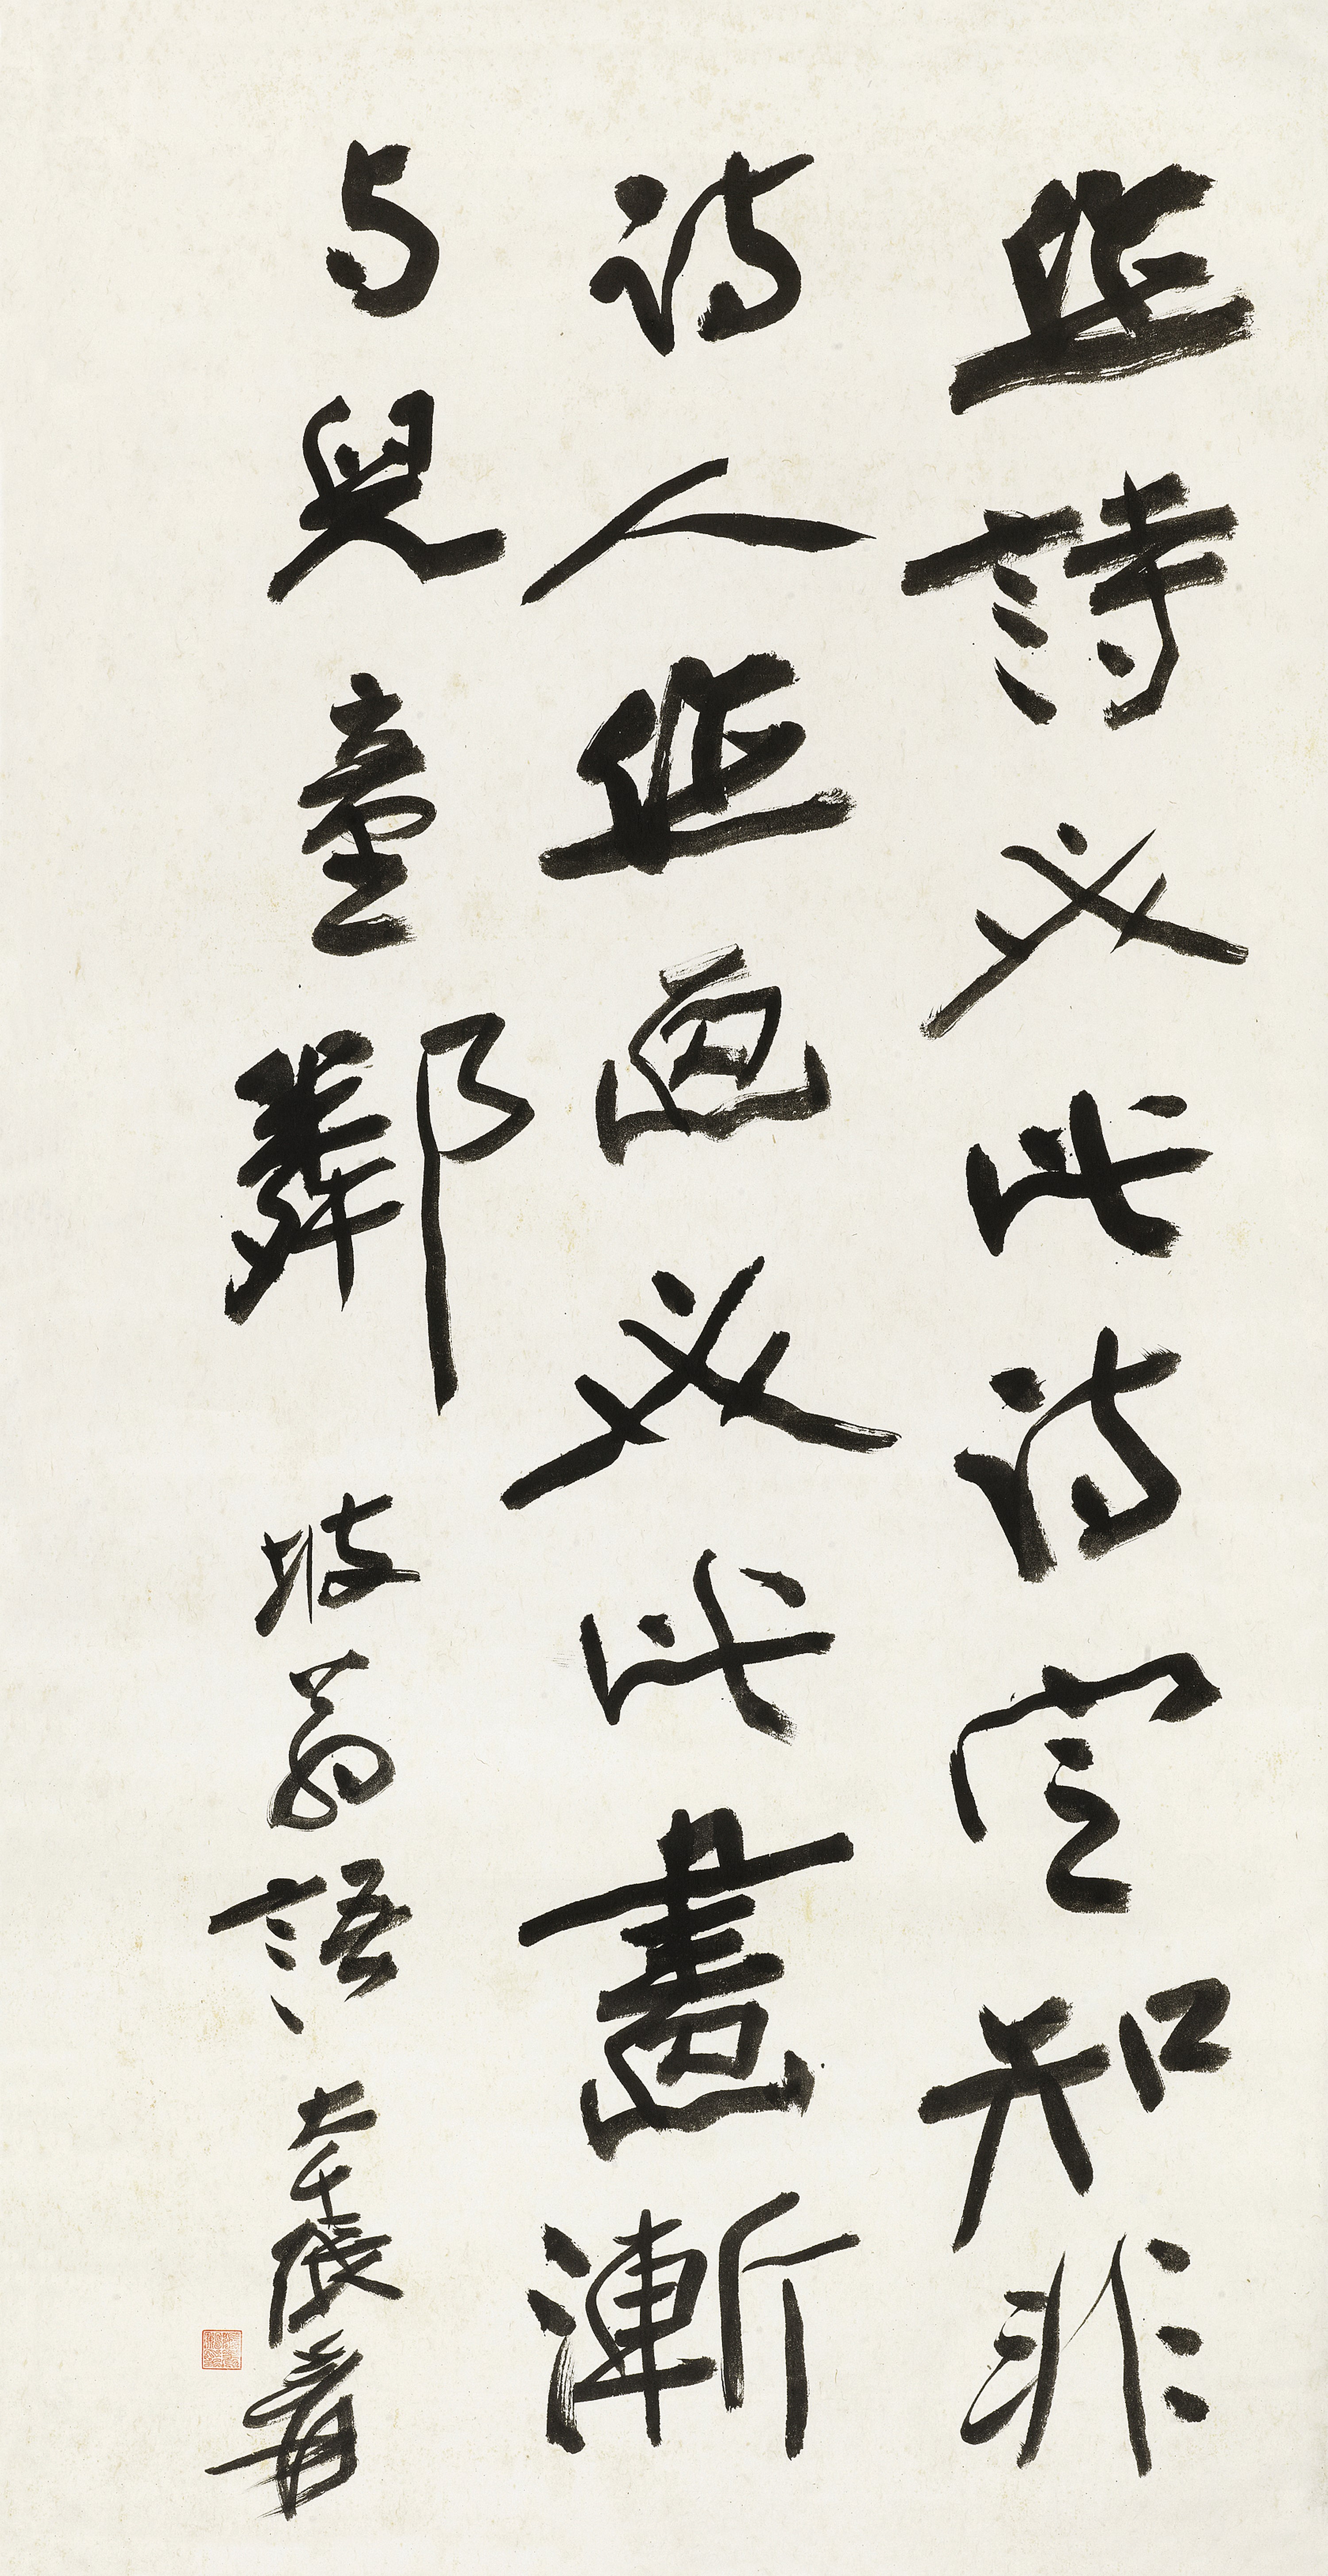 作詩必此詩定知非
詩人作画必此畫漸
与兒童鄰坡翁語大千張爰